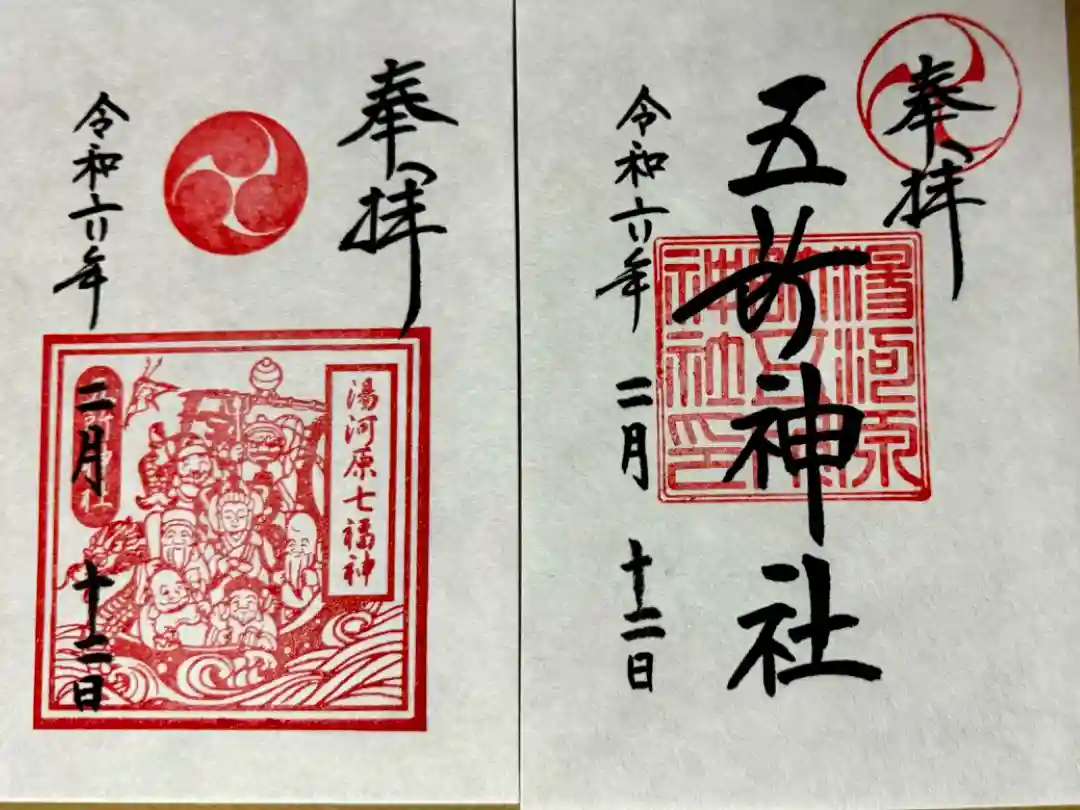 奉拝
五所神社
湯河原
神社印
令和六年
二月
十二日
奉拝
湯河原七福神
令和六年
二月
十二日